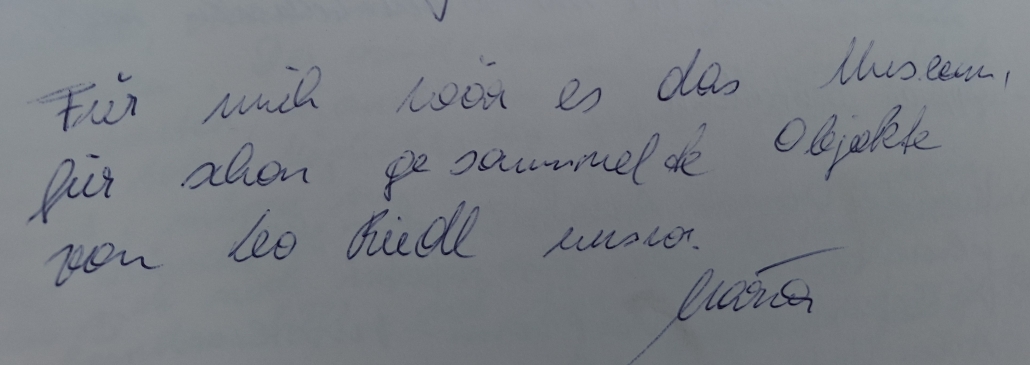 Für mich wär es das Museum,
für schon gesammelte Objekte
von Leo Riedl